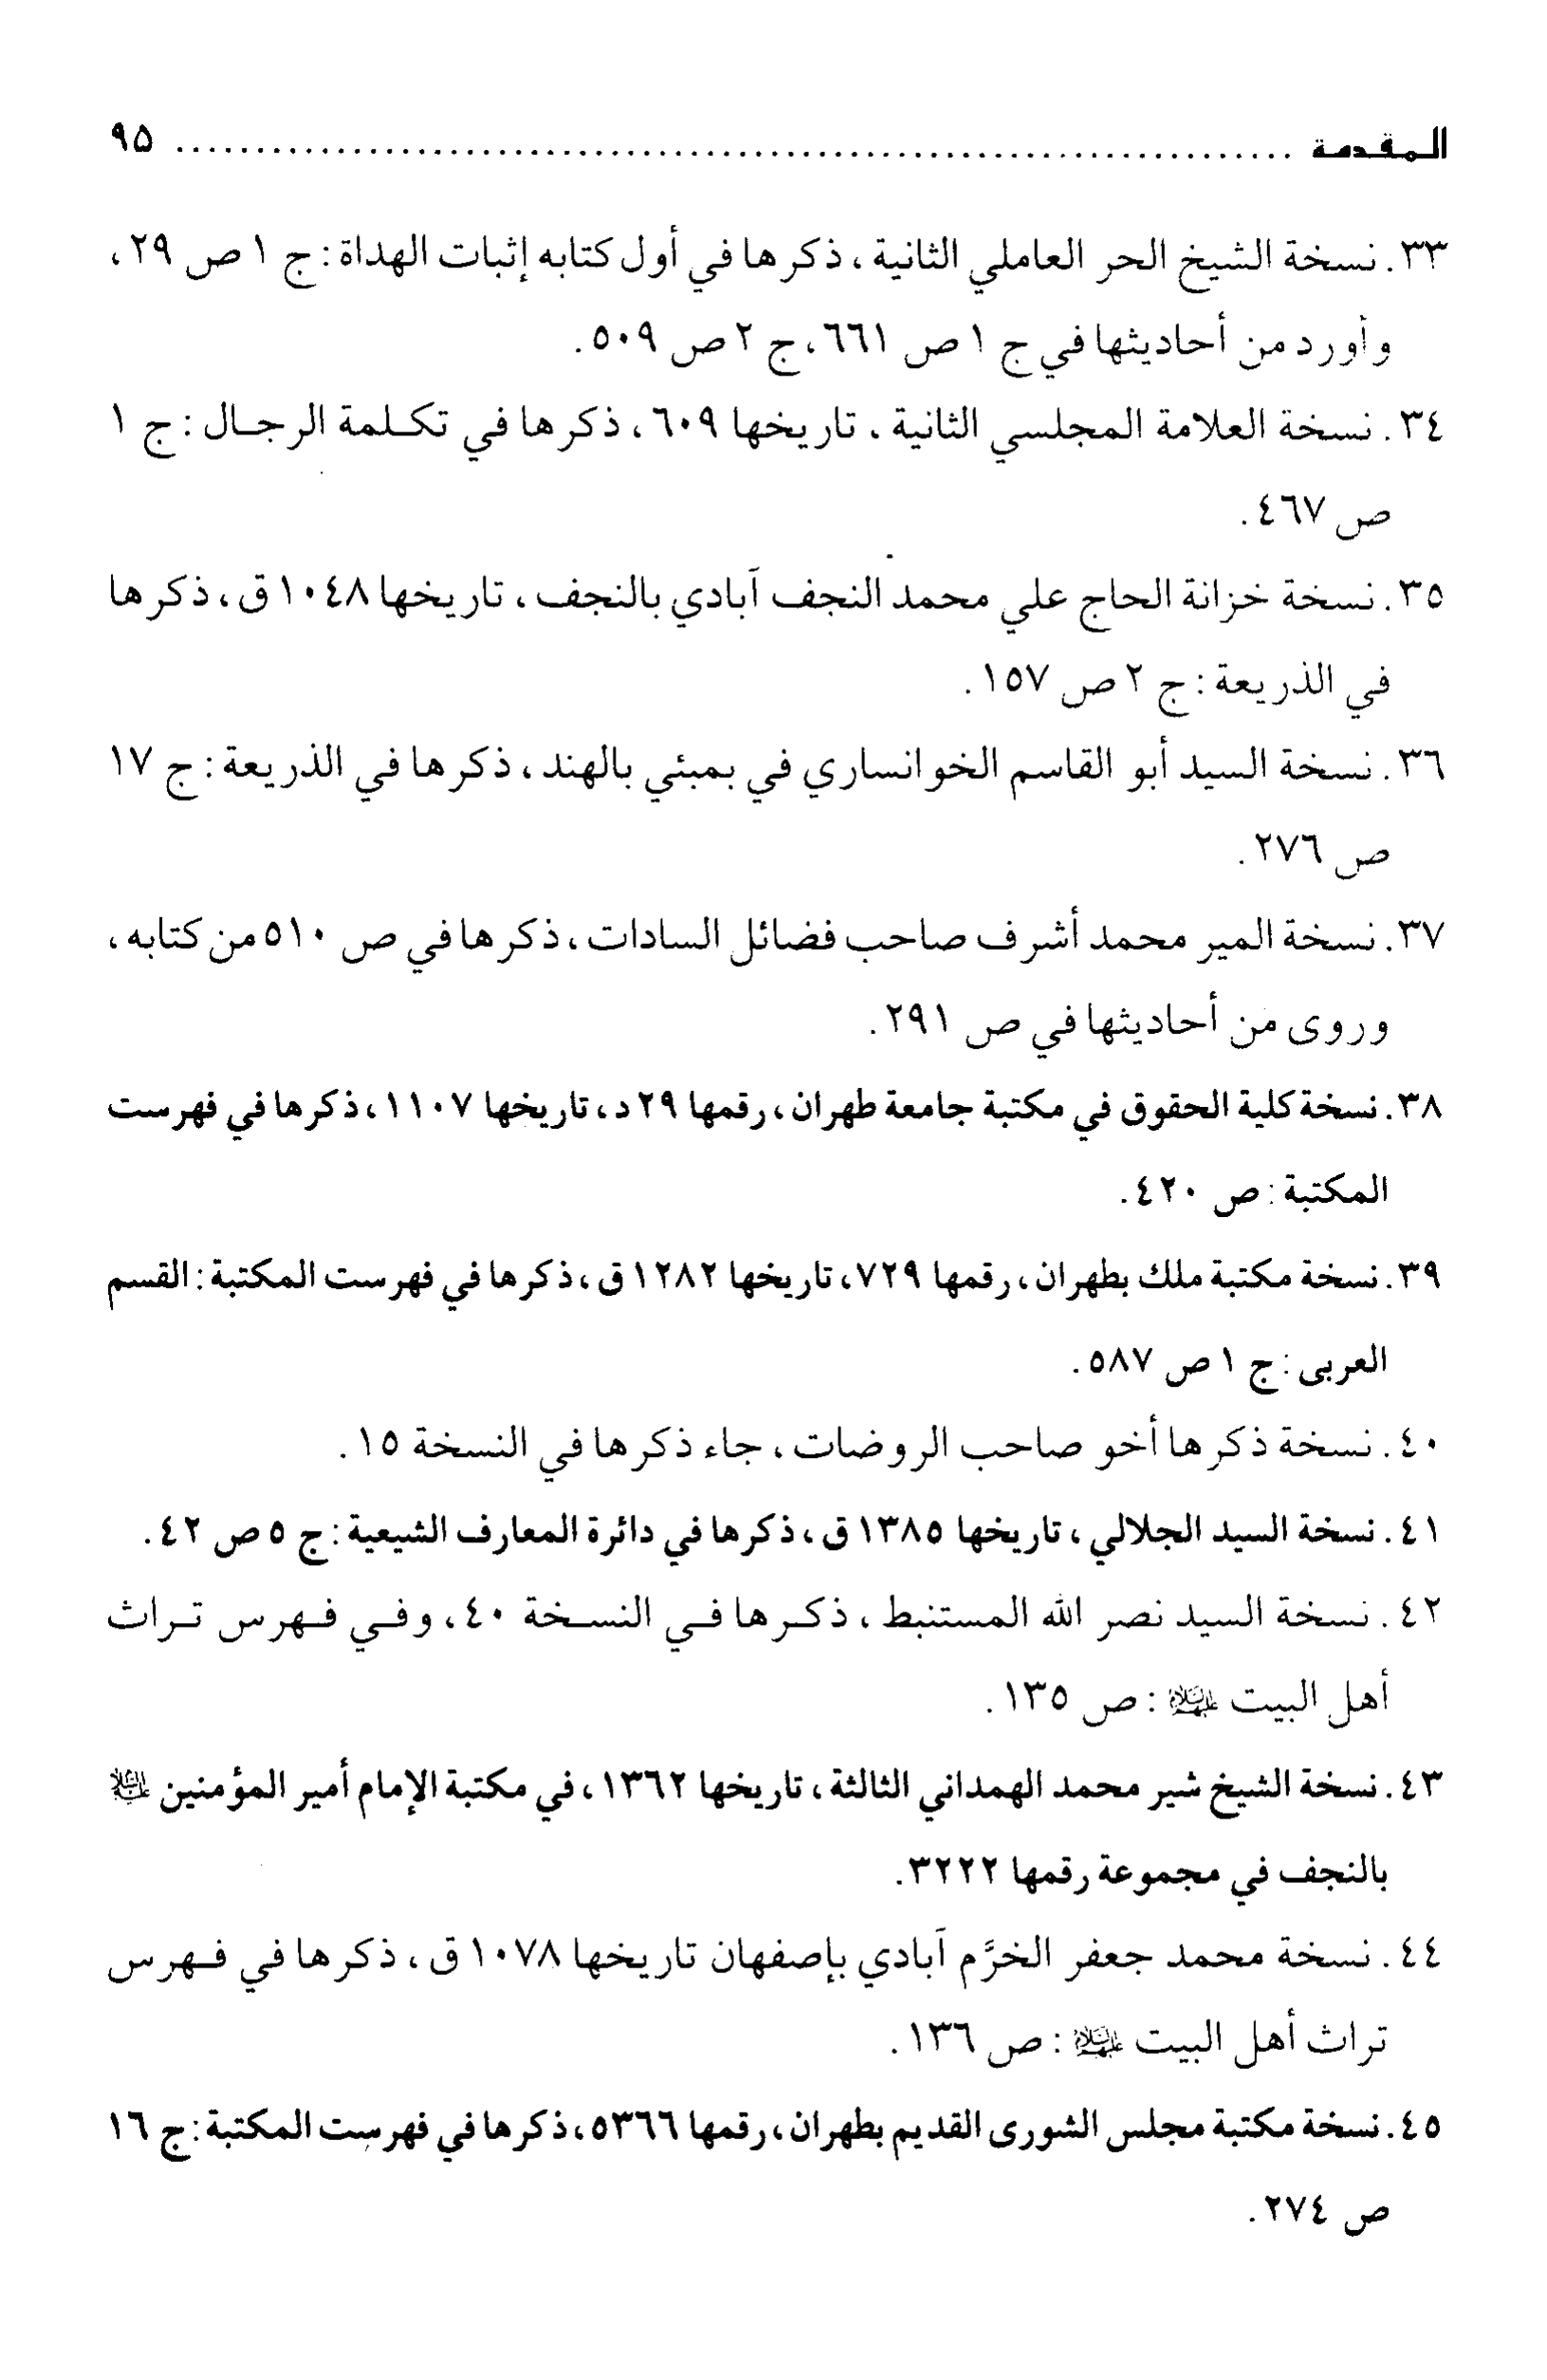 المقدمة ........................................................................ ٩٥
٣٣. نسخة الشيخ الحر العاملي الثانية، ذكرها في أول كتابه إثبات الهداة: ج ١ ص ٢٩،
وأورد من أحاديثها في ج ١ ص ٦٦١، ج ٢ ص ٥٠٩.
٣٤. نسخة العلامة المجلسي الثانية، تاريخها ٦٠٩، ذكرها في تكلمة الرجال: ج ١
ص ٤٦٧.
٣٥. نسخة خزانة الحاج علي محمد النجف آبادي بالنجف، تاريخها ١٠٤٨ ق، ذكرها
في الذريعة: ج ٢ ص ١٥٧.
٣٦. نسخة السيد أبو القاسم الخوانساري في بمبئي بالهند، ذكرها في الذريعة: ج ١٧
ص ٢٧٦.
٣٧. نسخة المير محمد أشرف صاحب فضائل السادات، ذكرها في ص ٥١٠ من كتابه،
وروى من أحاديثها في ص ٢٩١.
٣٨. نسخة كلية الحقوق في مكتبة جامعة طهران، رقمها ٢٩ د، تاريخها ١١٠٧، ذكرها في فهرست
المكتبة: ص ٤٢٠.
٣٩. نسخة مكتبة ملك بطهران، رقمها ٧٢٩، تاريخها ١٢٨٢ ق، ذكرها في فهرست المكتبة: القسم
العربى: ج ١ ص ٥٨٧.
٤٠. نسخة ذكرها أخو صاحب الروضات، جاء ذكرها في النسخة ١٥.
٤١. نسخة السيد الجلالي، تاريخها ١٣٨٥ ق، ذكرها في دائرة المعارف الشيعية: ج ٥ ص ٤٢.
٤٢. نسخة السيد نصر الله المستنبط، ذكرها في النسخة ٤٠، وفي فهرس تراث
أهل البيت عليهم السلام: ص ١٣٥.
٤٣. نسخة الشيخ شير محمد الهمداني الثالثة، تاريخها ١٣٦٢، في مكتبة الإمام أمير المؤمنين عليه السلام
بالنجف في مجموعة رقمها ٣٢٢٢.
٤٤. نسخة محمد جعفر الخرَّم آبادي بإصفهان تاريخها ١٠٧٨ ق، ذكرها في فهرس
تراث أهل البيت عليهم السلام: ص ١٣٦.
٤٥. نسخة مكتبة مجلس الشورى القديم بطهران، رقمها ٥٣٦٦، ذكرها في فهرست المكتبة: ج ١٦
ص ٢٧٤.